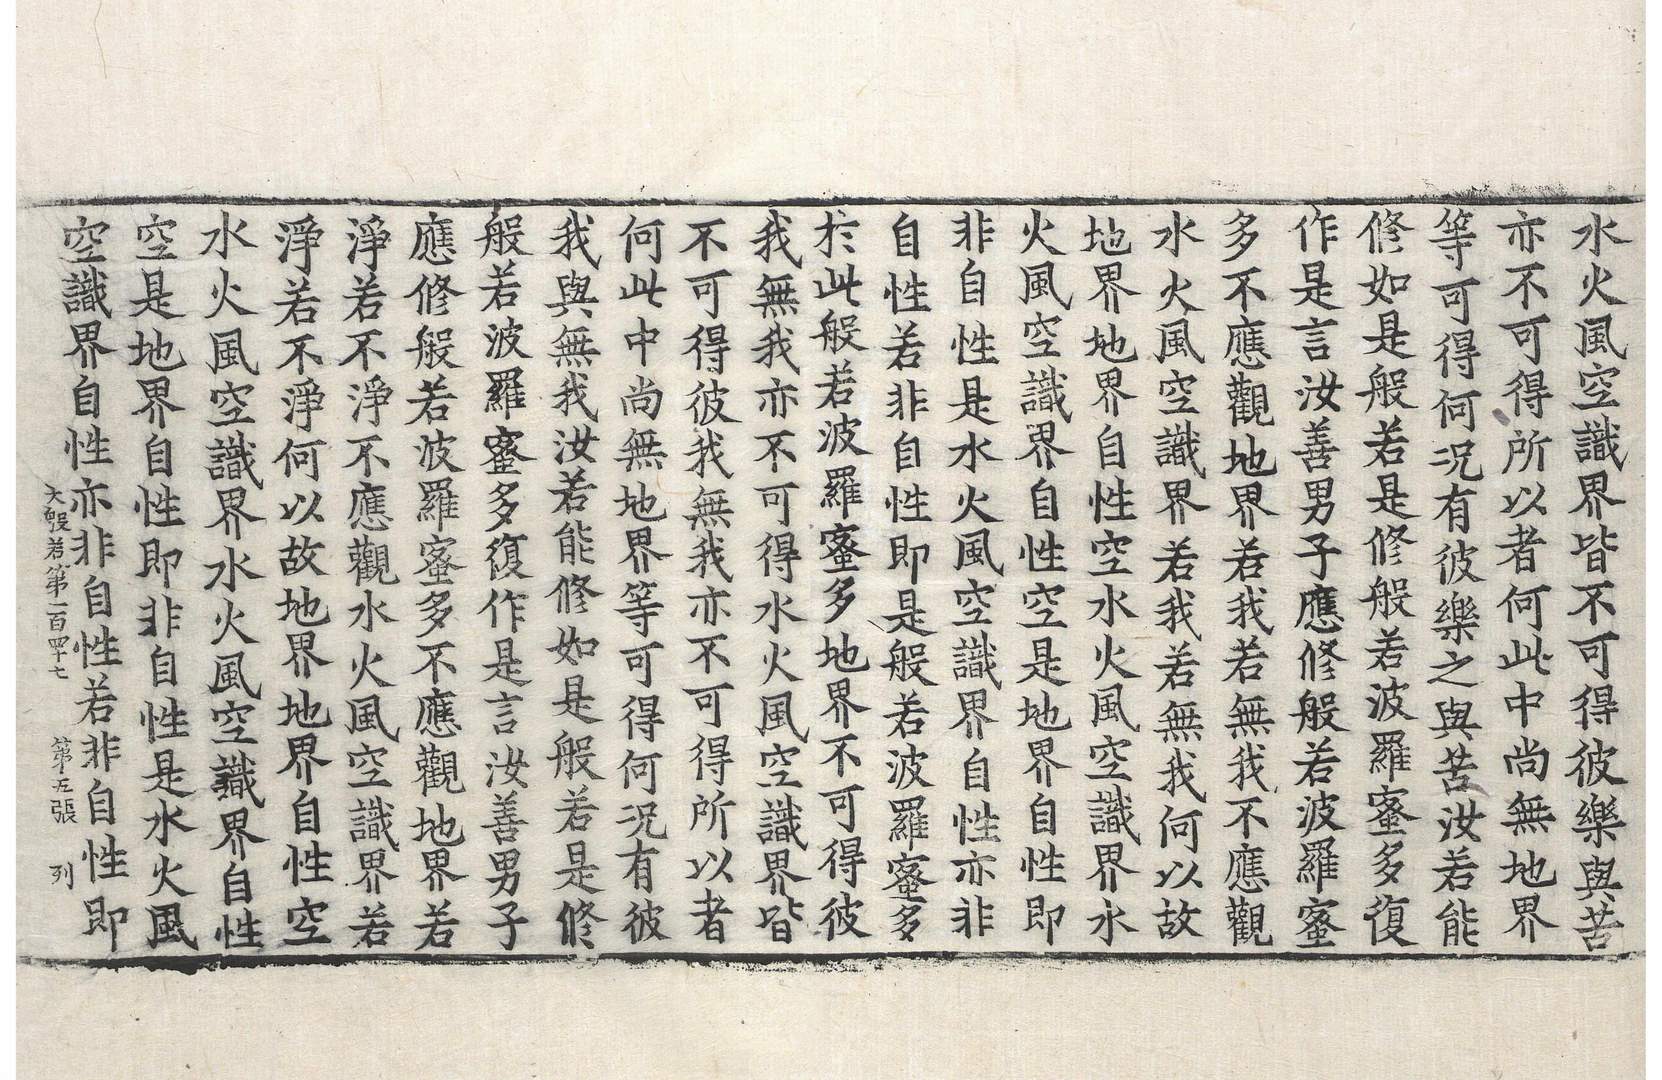 水火風空識界皆不可得彼樂與苦
亦不可得所以者何此中尚無地界
等可得何况有彼樂之與苦汝若能
修如是般若是修般若波羅蜜多復
作是言汝善男子應修般若波羅蜜
多不應觀地界若我若無我不應觀
水火風空識界若我若無我何以故
地界地界自性空水火風空識界水
火風空識界自性空是地界自性即
非自性是水火風空識界自性亦非
自性若非自性即是般若波羅蜜多
於此般若波羅蜜多地界不可得彼
我無我亦不可得水火風空識界皆
不可得彼我無我亦不可得所以者
何此中尚無地界等可得何况有彼
我與無我汝若能修如是般若是修
般若波羅蜜多復作是言汝善男子
應修般若波羅蜜多不應觀地界若
淨若不淨不應觀水火風空識界若
淨若不淨何以故地界地界自性空
水火風空識界水火風空識界自性
空是地界自性即非自性是水火風
空識界自性亦非自性若非自性即
大般若第一百四十七 第十五張 列